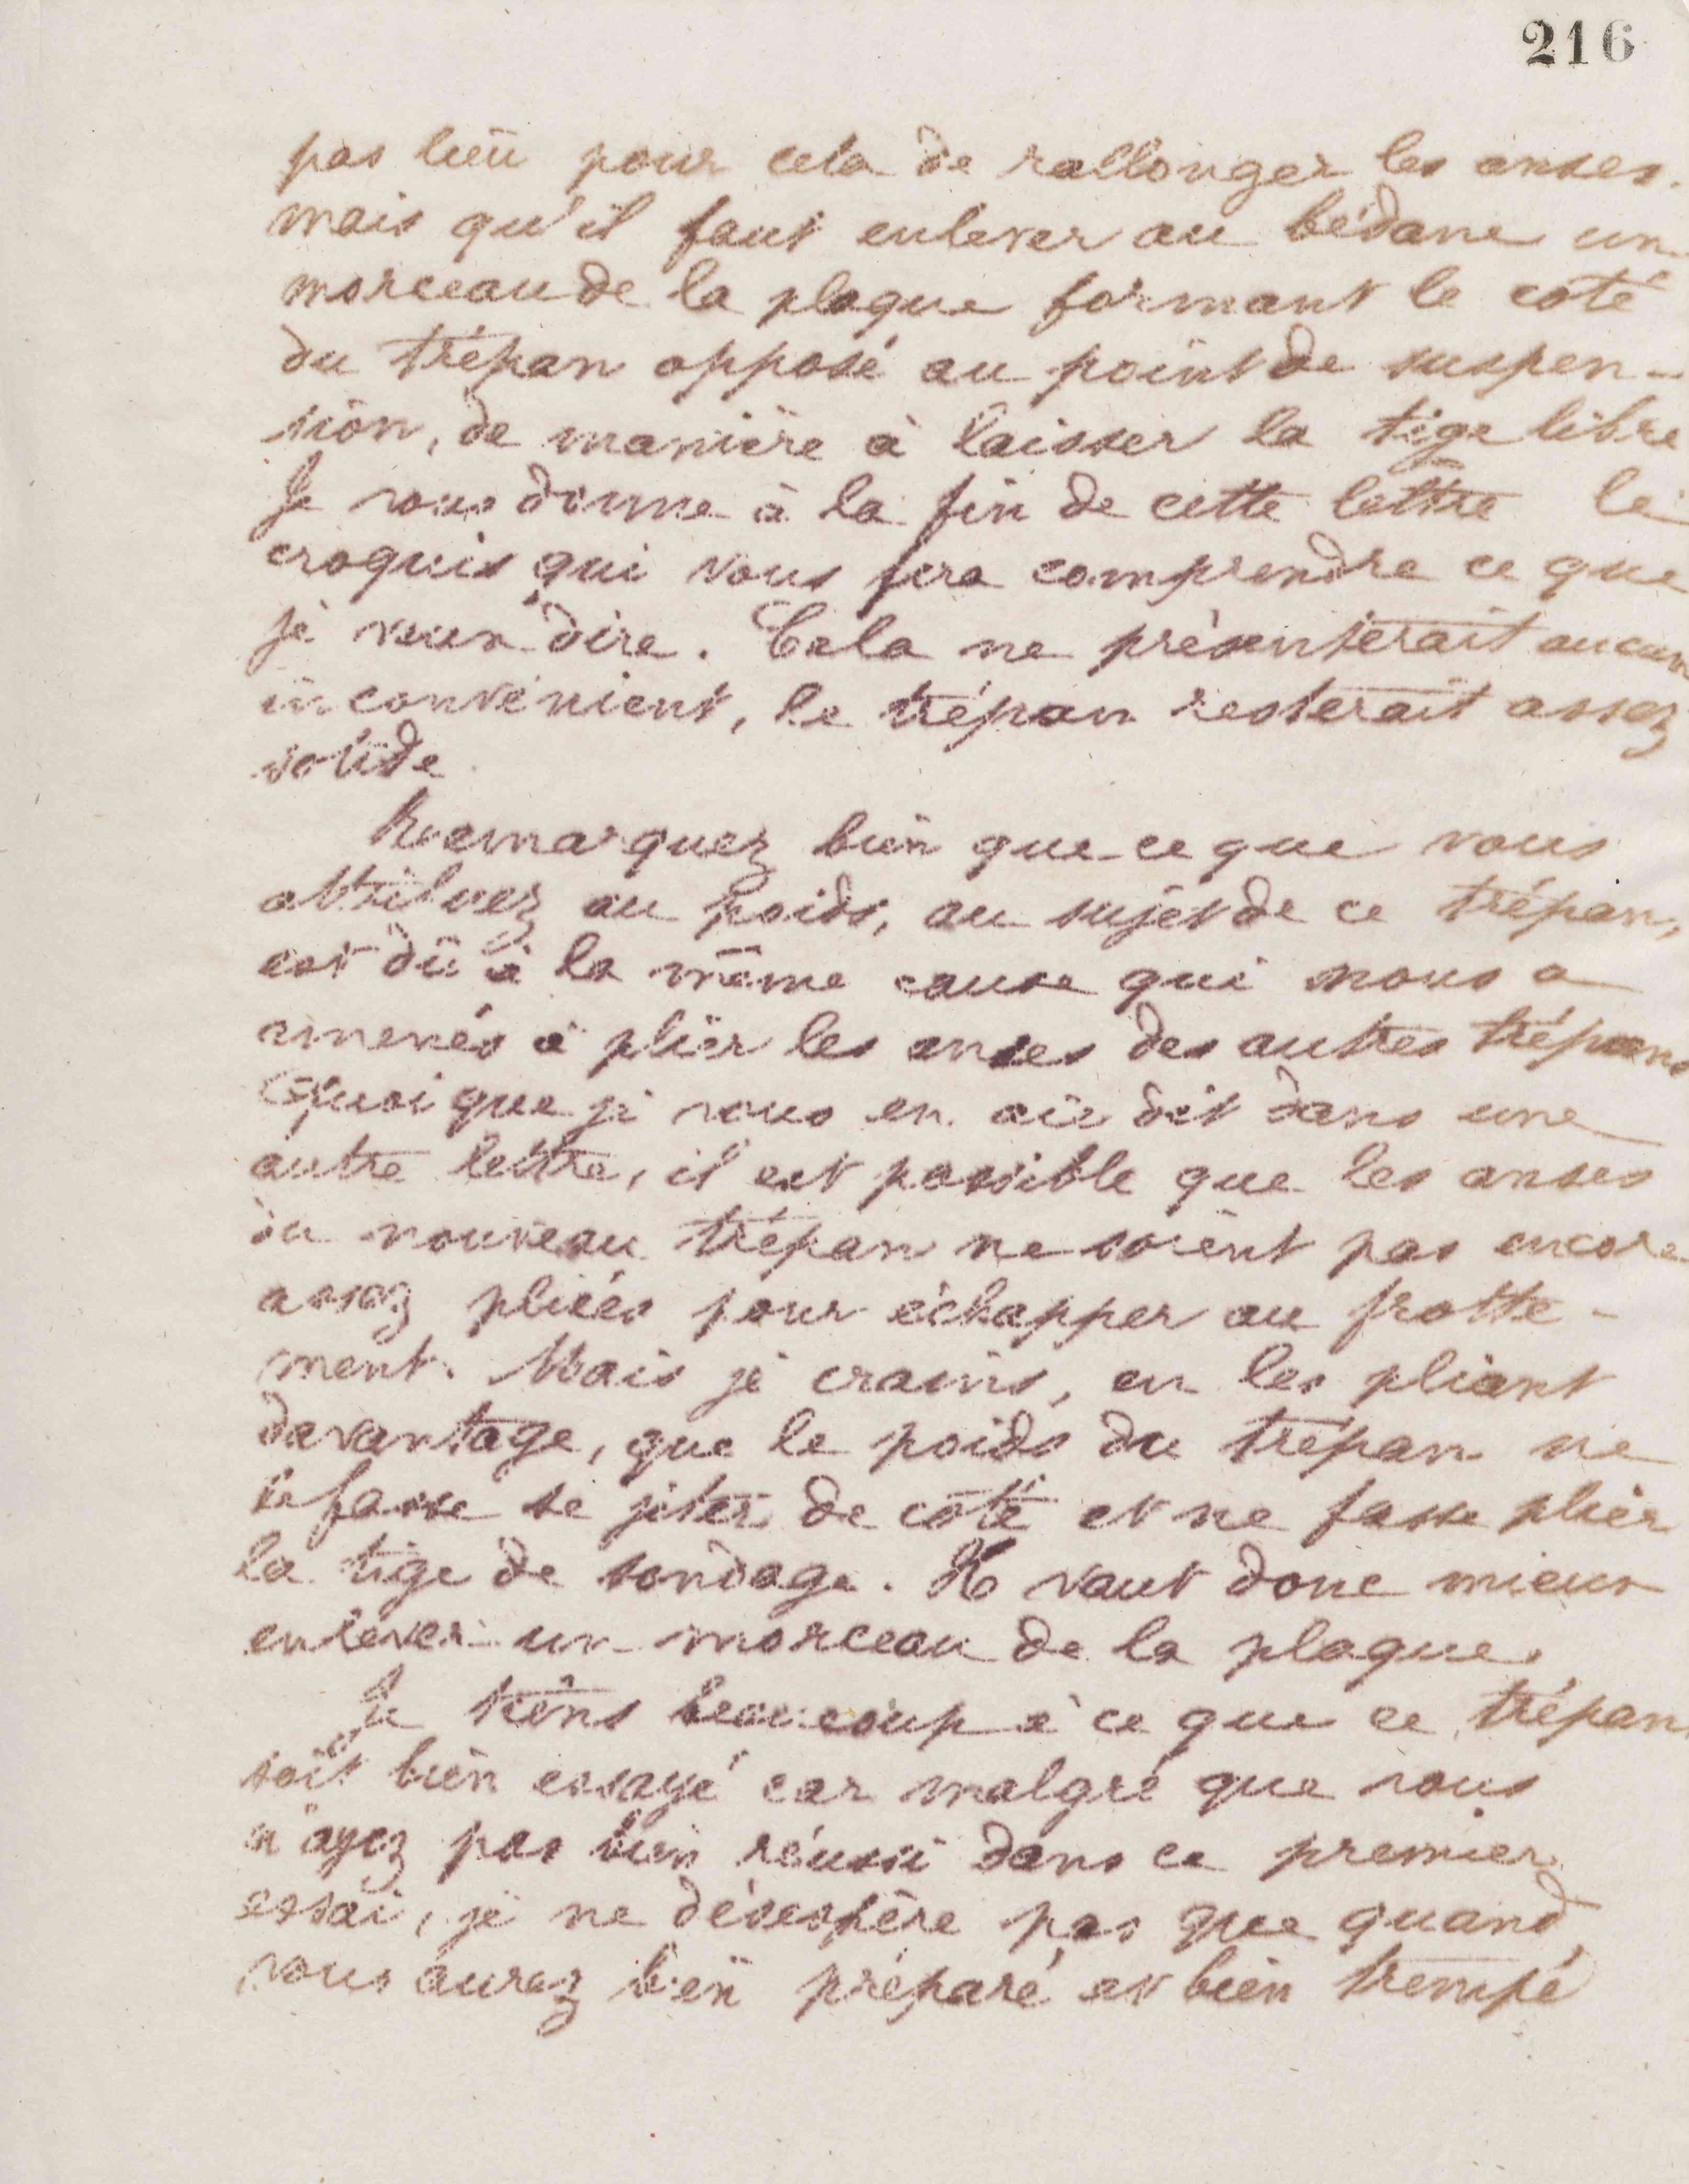 216
pas lieu pour cela de rallonger les anses.
mais qu'il faut enlever au bédane un
morceau de la plaque formant le coté
du trépan opposé au point de suspen-
sion, de manière à laisser la tige libre
Je vous donne à la fin de cette lettre le
croquis qui vous fera comprendre ce que
je veux dire. Cela ne présenterait aucun
inconvénient, le trépan resterait assez
solide.
Remarquez bien que ce que vous
attribuez au poids, au sujet de ce trépan,
est dû à la même cause qui nous a
amenés à plier les anses des autres trépans
Quoique je vous en aie dit dans une
autre lettre, il est possible que les anses
du nouveau trépan ne soient pas encore
assez pliées pour échapper au frotte-
ment. Mais je crains, en les pliant
davantage, que le poids du trépan ne
le fasse se jeter de côté et ne fasse plier
la tige de sondage. Il vaut donc mieux
enlever un morceau de la plaque.
Je tiens beaucoup à ce que ce trépan
soit bien essayé car malgré que vous
n'ayez pas bien réussi dans ce premier
essai, je ne désespère pas que quand
vous aurez bien préparé et bien trempé